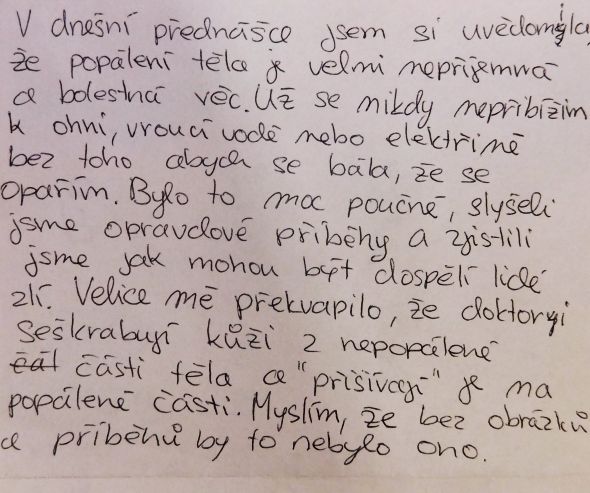 V dnešní přednášce jsem si uvědomila,
že popálení těla je velmi nepříjemná
a bolestná věc. Už se nikdy nepřibížim
k ohni, vroucí vodě nebo elektřině
bez toho abych se bála, že se
opařím. Bylo to moc poučné, slyšeli
jsme opravdové příběhy a zjistili
jsme jak mohou být dospělí lidé
zlí. Velice mě překvapilo, že doktoryi
seškrabují kůži z nepopálené
části těla a "přišívají" je na
popálené části. Myslím, že bez obrázků
a příběhů by to nebylo ono.